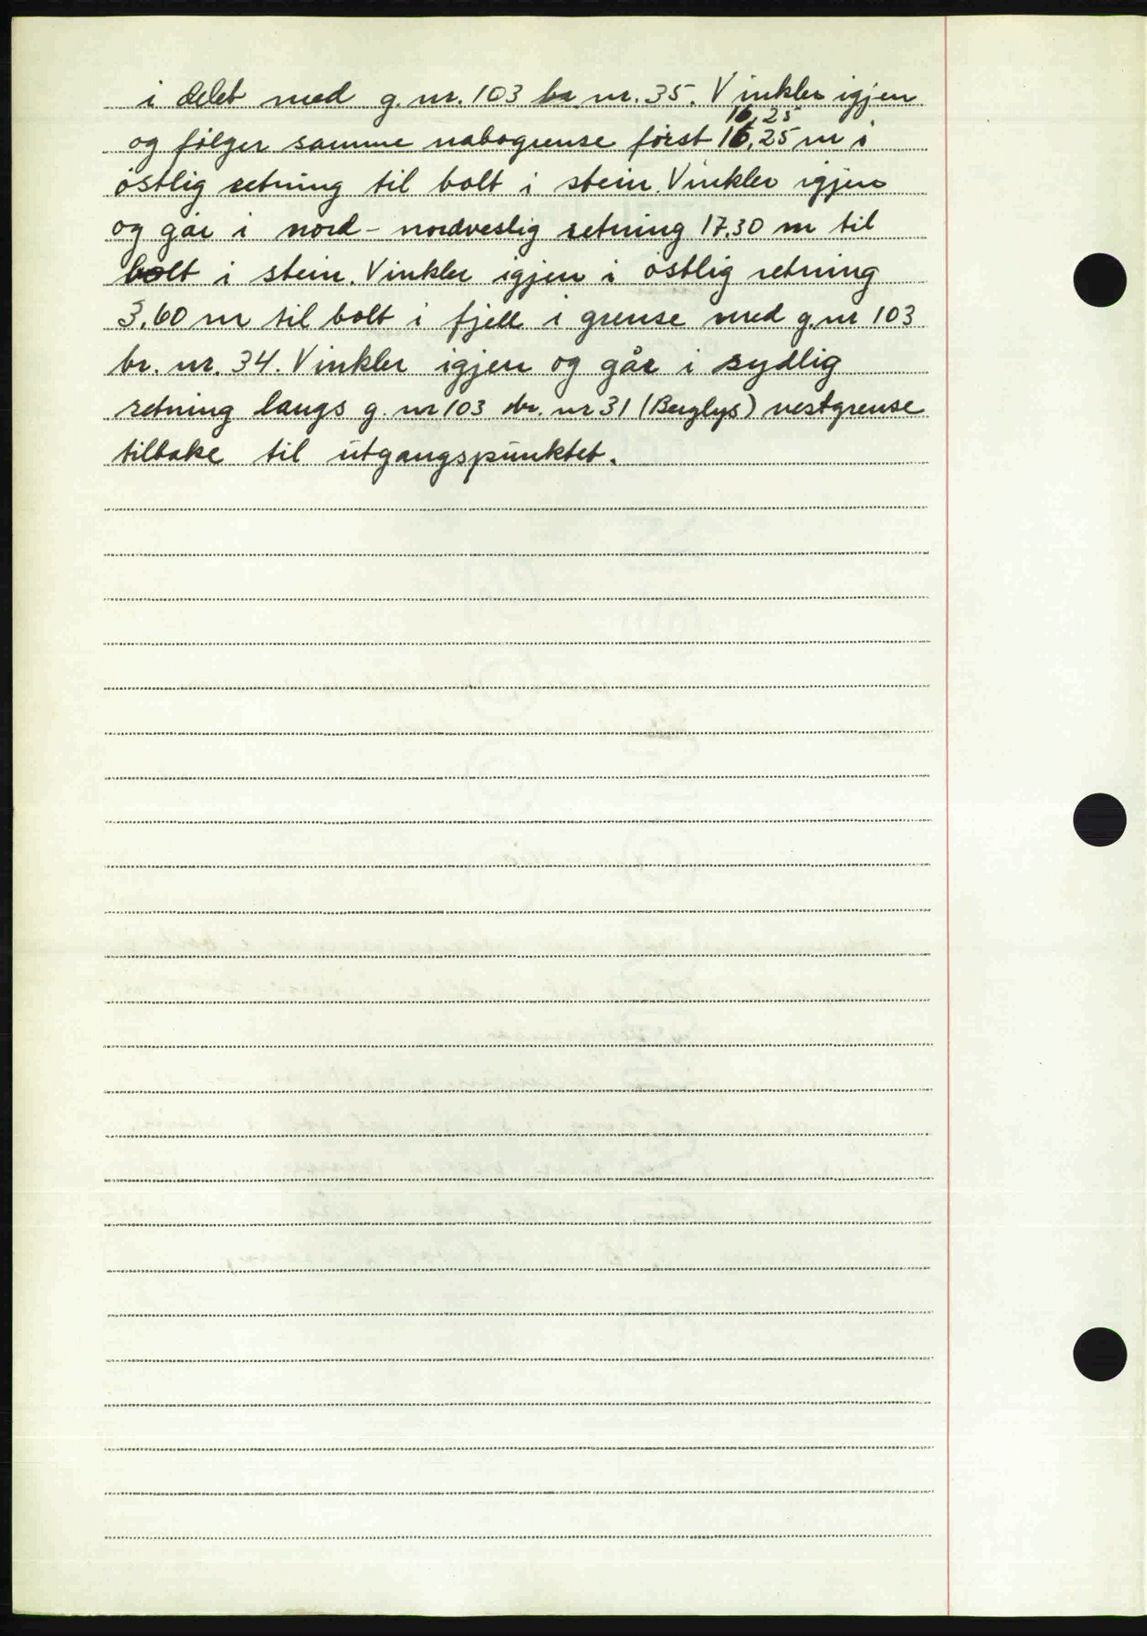 i delet med g. nr. 103 br nr. 35. Vinkler igjen
16,25
og følger samme nabogrense først 16,25 m i
østlig retning til bolt i stein. Vinkler igjen
og går i nord - nordveslig retning 17.30 m til
bolt i stein. Vinkler igjen i østlig retning
3.60 m til bolt i fjell i grense med g. nr 103
br. nr. 34. Vinkler igjen og går i sydlig
retning langs g. nr 103 br. nr 31 (Berglys) vestgrense
tilbake til utgangspunktet.